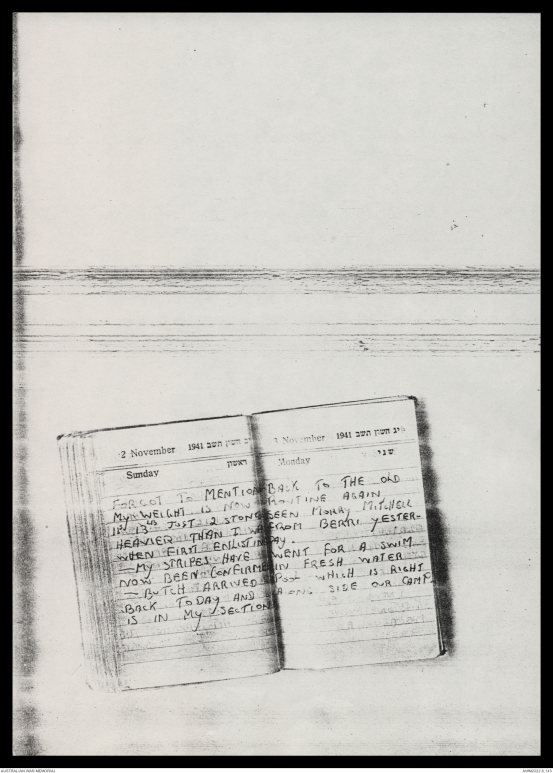 2 November 1941
Sunday ראשון
FORGOT TO MENTION
MY WEIGHT IS NOW
JUST 2 STONE
HEAVIER THAN I WAS
WHEN FIRST ENLISTING
— MY STRIPES HAVE
NOW BEEN CONFIRMED
— BUTCH ARRIVED
BACK TODAY AND
IS IN MY SECTION
3 November 1941 י״ג חשון תשב
Monday שני
BACK TO THE OLD
ROUTINE AGAIN
SEEN MORRY MITCHELL
FROM BERRI YESTER-
DAY.
WENT FOR A SWIM
IN FRESH WATER
POOL WHICH IS RIGHT
ALONG SIDE OUR CAMP
AUSTRALIAN WAR MEMORIAL